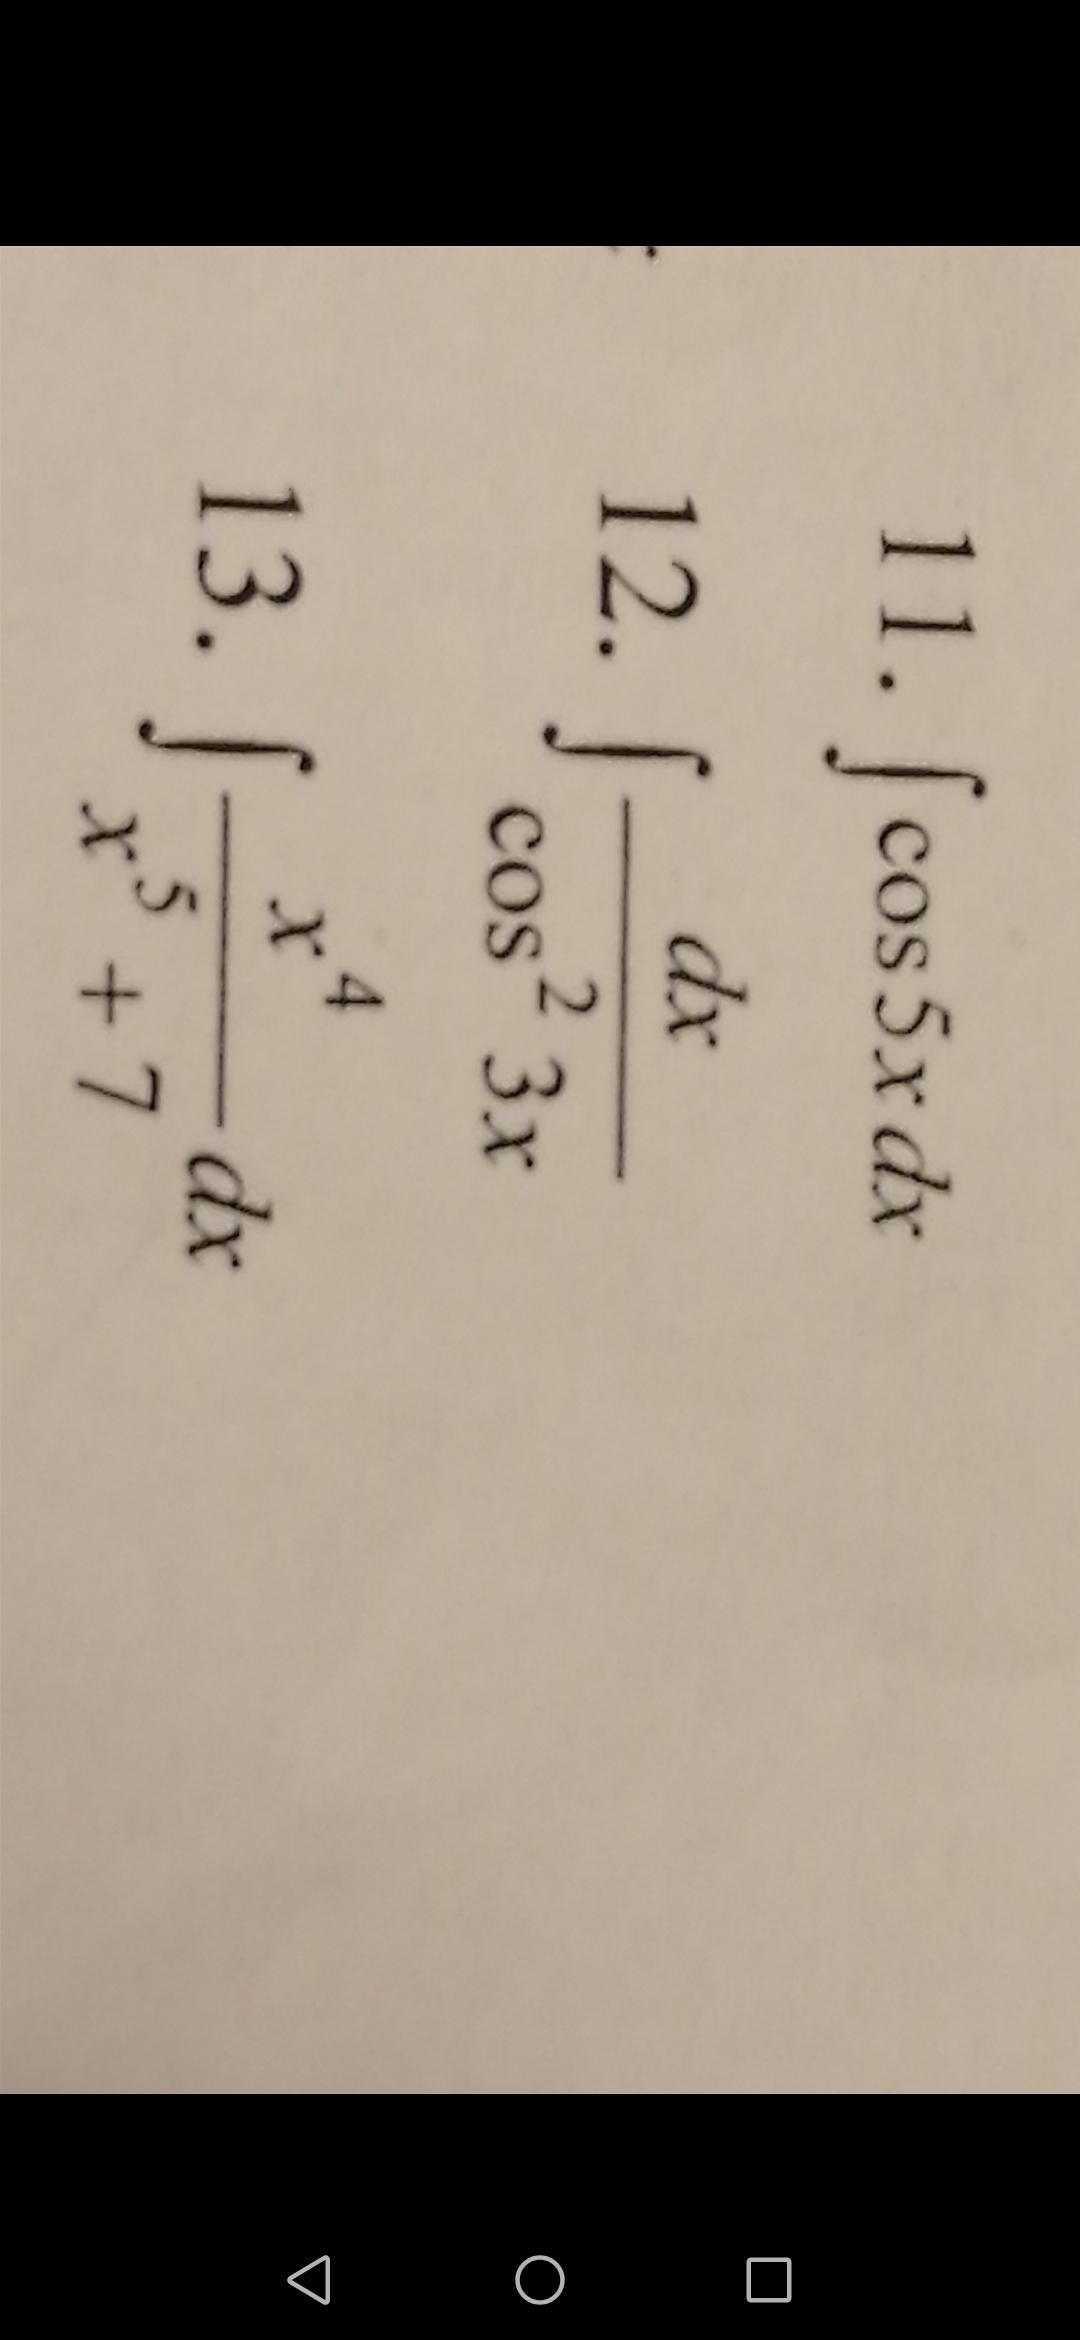 11. ∫ cos 5x dx
12. ∫ dx / cos² 3x
13. ∫ x⁴ / x⁵ + 7 dx